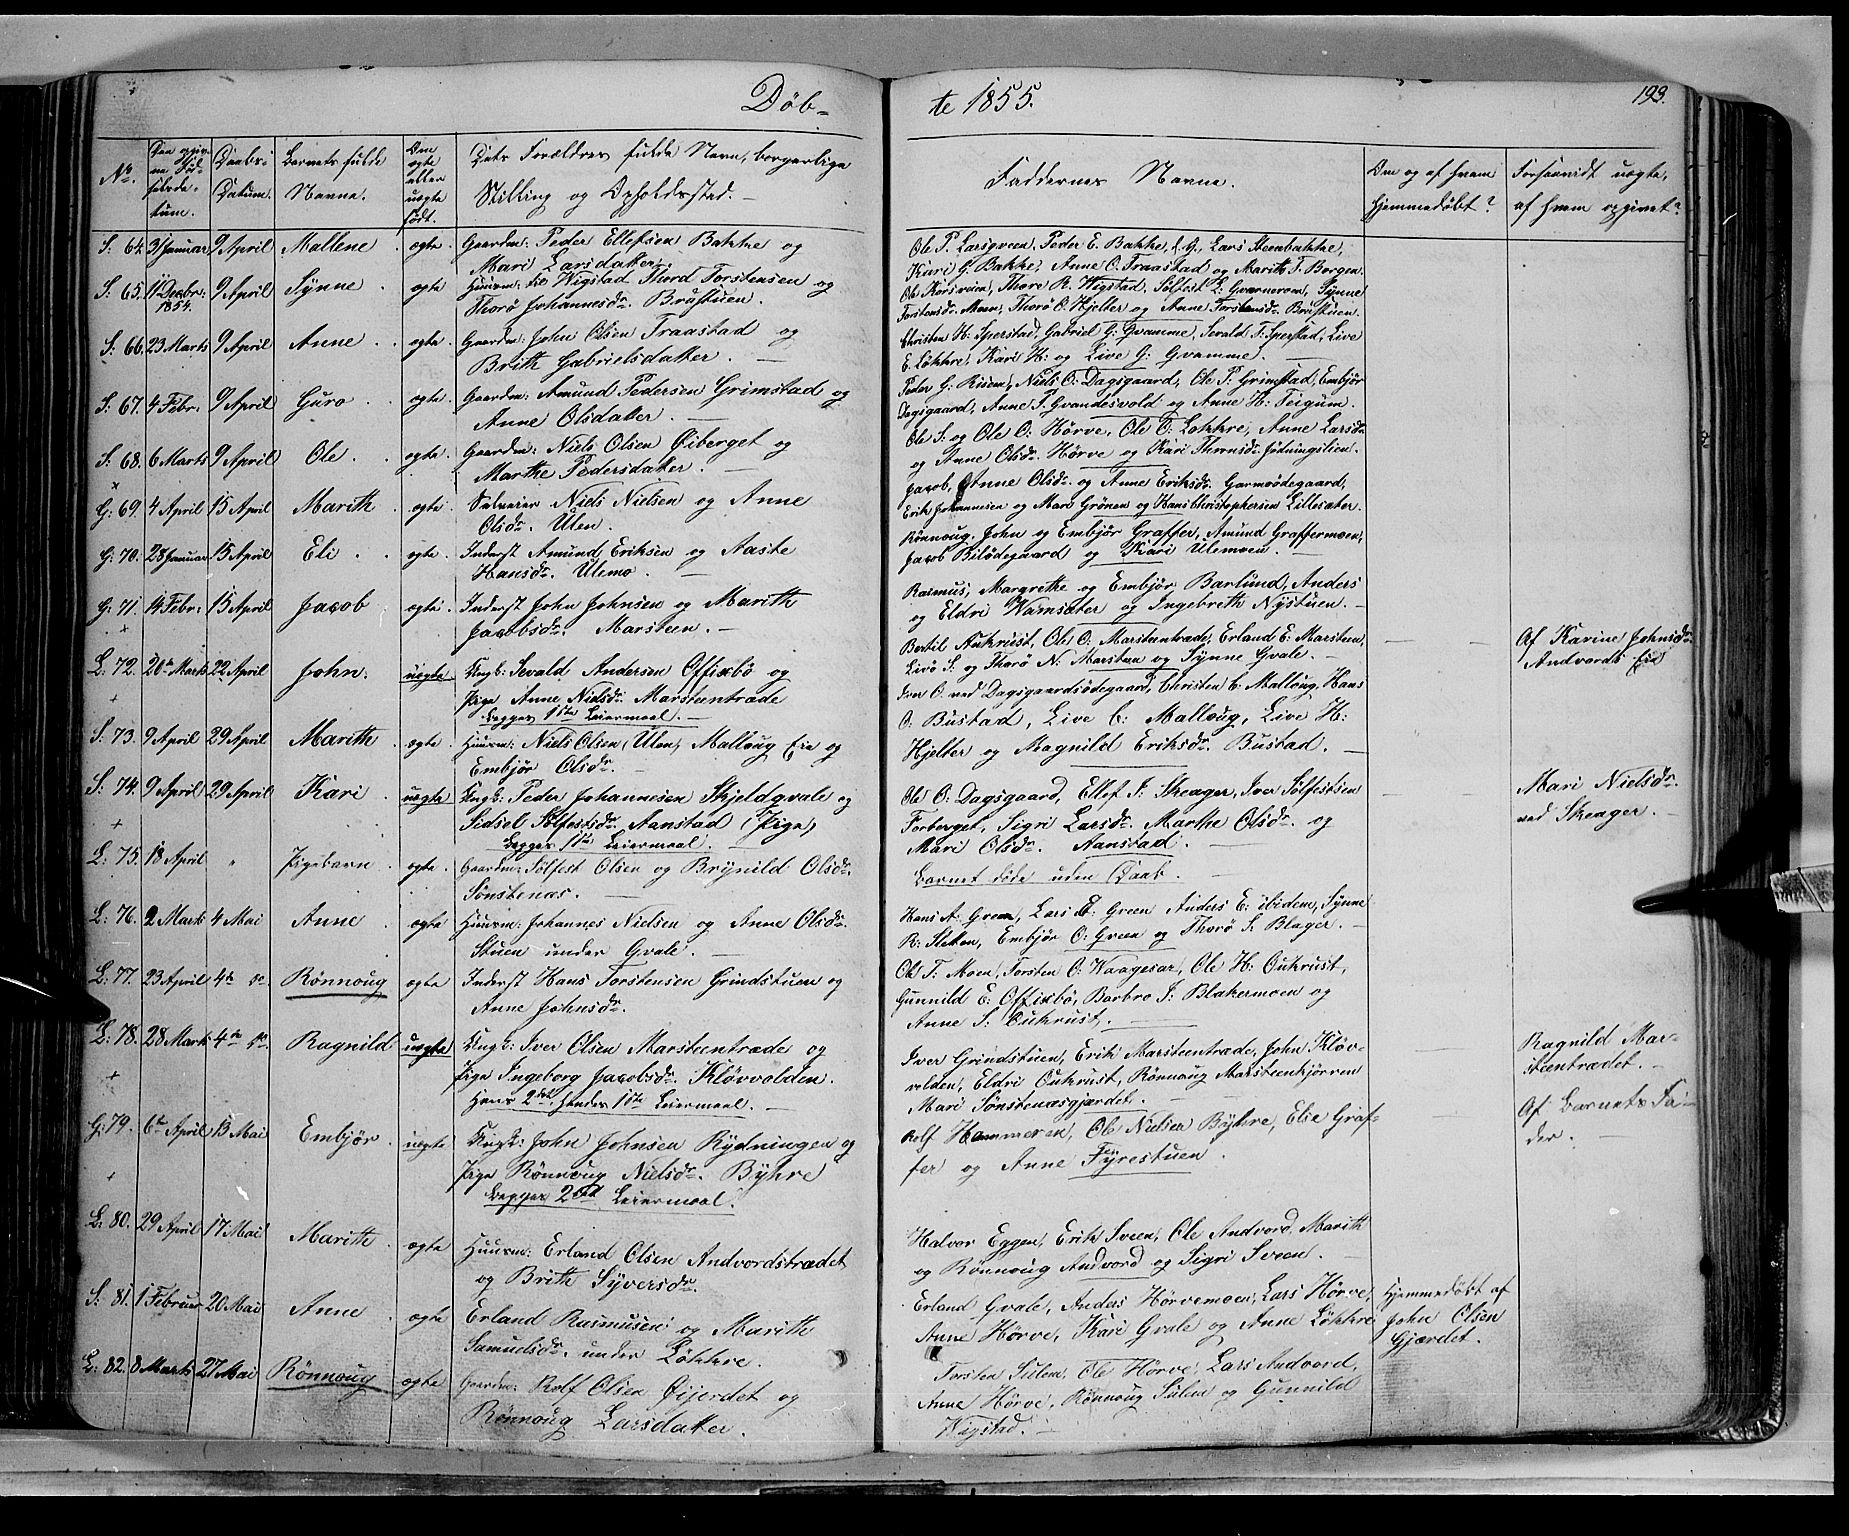 Døb-
te 1855.
193.
No.
Barnets fulde
Navne.
Daabs-
Datum.
Om
ægte
eller
uægte
født.
Dets Forældres fulde Navn, borgerlige
Stilling og Opholdssted.
Faddernes Navne.
Om og af hvem
hjemmedøbt?
Forsaavidt uægte,
af hvem opgivet?
S: 64. 31 Januar 9 April Mallene ægte. Gaardm: Peder Ellefsen Bakke og
Mari Larsdatter.
Ole P. Larsgveen, Peder E. Bakke, Lars Steenbakke,
Kari G. Bakke, Anne O. Traastad og Marith T. Borgen.
S: 65. 11 Decbr: 1854. 9 April Synne ægte Huusm: Wigstad Thord Torstensen og
Thorø Johannesdr. Brustuen.
Ole Korsveien, Thore R. Wigstad, Sølfest Synne
Torstensdr. Moen, Thorø O. Hjelter og Anne Torstensdr. Brustuen.
S: 66. 23 Marts 9 April Anne ægte. Gaardm: John Olsen Traastad og
Brith Gabrielsdatter.
Christen H: Sperstad, Gabriel G: Gvamme, Sevald T: Sperstad, Live
E. Løkkre, Kari H: og Live G: Gvamme.
S: 67. 4 Febr: 9 April Guro ægte. Gaardm: Amund Pedersen Grimstad og
Anne Olsdatter.
Peder G: Risem, Niels O: Dagsgaard, Ole P: Grimstad, Embjør
Dagsgaard, Anne P. Gvandesvold og Anne H: Teigum.
S: 68. 6 Marts 9 April Ole ægte. Gaardm: Niels Olsen Øiberget og
Marthe Pedersdatter.
Ole S: og Ole O: Hørve, Ole O: Løkkre, Anne Larsdr.
og Anne Olsdr. Hørve og Kari Jødningslien.
G: 69. 4 April 15 April Marith ægte. Selveier Niels Nielsen og Anne
Olsdr. Ulen.
Jacob, Anne Olsdr. og Anne Eriksdr. Garmoødegaard,
Erik Johannesen og Mari Grønen og Hans Christophersen Lillesæter.
G: 70. 28 Januar 15 April Eli ægte. Inderst Amund Eriksen og Aaste
Hansdr. Ulemo.
Rønnoug, John og Embjør Graffer, Amund Graffermoen,
Jacob Bilødegaard og Kari Ulemoen.
G: 71. 14 Febr: 15 April Jacob ægte. Inderst John Johnsen og Marith
Jacobsdr. Marsteen.
Rasmus, Margrethe og Embjør Barlund, Anders
og Eldri Wamsæter og Ingebreth Nystuen.
L: 72. 20de Marts 22 April John. uægte Ungk: Sevald Andersen Offixbø og
Pige Anne Nielsdr. Marsteentræde
Begges 1ste Leiermaal.
Bertil Aukrust, Ole O. Marsteentræde, Erland E. Marsteen,
Live S. og Thorø N: Marsteen og Synne Gvale.
Af Karine Johnsdr.
Andvords Eie
S: 73. 9 April 29 April Marith ægte. Huusm: Niels Olsen (Ulen) Malloug Eie og
Embjør Olsdr.
Iver O. ved Dagsgaardsødegaard, Christen E. Malloug, Hans
O: Bustad, Live E: Malloug, Live H:
Hjelter og Ragnild Eriksdr. Bustad.
S: 74. 9 April 29 April Kari uægte Ungk: Peder Johannesen Skjeldgvale og
Sidsel Sølfestsdr. Aanstad (Pige)
Begges 1ste Leiermaal.
Ole O: Dagsgaard, Ellef J: Skeager, Iver Sølfestsen
Forberget, Sigri Larsdr. Marthe Olsdr. og
Mari Olsdr. Aanstad.
Mari Nielsdr.
ved Skeager.
L: 75. 18 April " Pigebarn ægte. Gaardm: Sølfest Olsen og Brynild Olsdr.
Sønstenæs.
Barnet døde uden Daab.
L: 76. 2 Marts 4 Mai Anne ægte Huusm: Johannes Nielsen og Anne Olsdr.
Stuen under Gvale.
Hans A: Green, Lars E: Green Anders E: ibidem, Synne
R: Sletten, Embjør O: Green og Thorø S. Blager.
L: 77. 23 April 4de do. Rønnoug ægte Inderst Hans Torstensen Grindstuen og
Anne Johnsdr.
Ole T. Moen, Torsten O: Waagesar, Ole H: Oukrust,
Gunnild E: Offixbø, Barbro J: Blakermoen og
Anne S: Oukrust.
L: 78. 28 Marts 4de do. Ragnild uægte Ungk: Iver Olsen Marsteentræde og
Pige Ingeborg Jacobsdr. Kløvvolden.
Hans 2det, hendes 1ste Leiermaal.
Iver Grindstuen, Erik Marsteentræde, John Kløv-
volden, Eldri Oukrust, Rønnoug Marsteenkjørren
Mari Sønstenæsgjærdet.
Ragnild Mar-
steentrædet.
G: 79. 6te April 13 Mai Embjør uægte Ungk: John Johnsen Rydningen og
Pige Rønnoug Nielsdr. Byhre
Begges 2det Leiermaal.
Rolf Hammeren, Ole Nielsen Byhre, Else Graf-
fer og Anne Fyrestuen.
Af Barnets Fa-
der.
L: 80. 29 April 17 Mai Marith ægte Huusm: Erland Olsen Andvordstrædet
og Brith Syversdr.
Halvor Eggen, Erik Sveen, Ole Andvord, Marith
og Rønnoug Andvord og Sigri Sveen.
S: 81. 1 Februar 20 Mai Anne ægte Erland Rasmusen og Marith
Samuelsdr. under Løkkre.
Erland Gvale, Anders Hørvemoen, Lars Hørve,
Anne Hørve, Kari Gvale og Anne Løkkre
Hjemmedøbt af
John Olsen
Gjærdet.
L: 82. 8 Marts 27 Mai Rønnoug ægte Gaardm: Rolf Olsen Øijerdet og
Rønnoug Larsdatter.
Torsten Sulem, Ole Hørve, Lars Andvord,
Anne Hørve, Rønnoug Sulem og Gunnild
Wigstad.